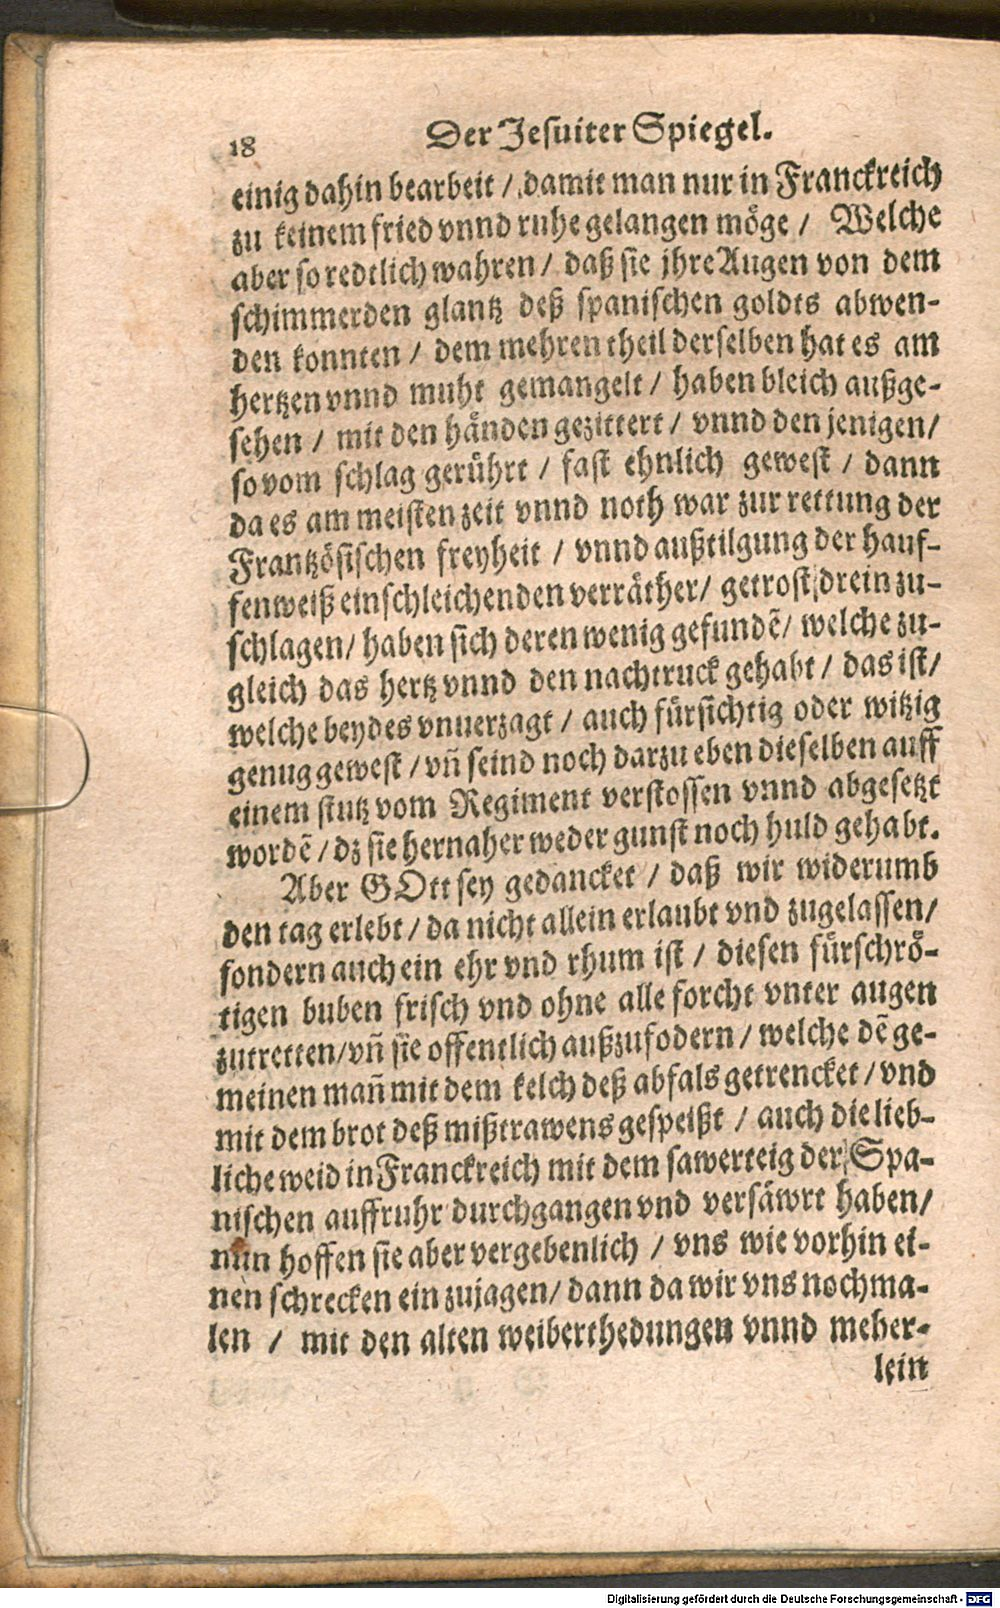 18 Der Jesuiter Spiegel.
einig dahin bearbeit / damit man nur in Franckreich
zu keinem fried vnnd ruhe gelangen möge / Welche
aber so redtlich wahren / daß sie jhre Augen von dem
schimmerden glantz deß spanischen goldts abwen-
den konnten / dem mehren theil derselben hat es am
hertzen vnnd muht gemangelt / haben bleich außge-
sehen / mit den händen gezittert / vnnd den jenigen /
so vom schlag gerührt / fast ehnlich gewest / dann
da es am meisten zeit vnnd noth war zur rettung der
Frantzösischen freyheit / vnnd außtilgung der hauf-
fenweiß einschleichenden verräther / getrost drein zu-
schlagen / haben sich deren wenig gefundē / welche zu-
gleich das hertz vnnd den nachtruck gehabt / das ist /
welche beydes vnuerzagt / auch fürsichtig oder witzig
genug gewest / vñ seind noch darzu eben dieselben auff
einem stutz vom Regiment verstossen vnnd abgesetzt
wordē / dz sie hernaher weder gunst noch huld gehabt.
Aber GOtt sey gedancket / daß wir widerumb
den tag erlebt / da nicht allein erlaubt vnd zugelassen /
sondern auch ein ehr vnd rhum ist / diesen fürschrö-
tigen buben frisch vnd ohne alle forcht vnter augen
zutretten / vñ sie offentlich außzufodern / welche dē ge-
meinen mañ mit dem kelch deß abfals getrencket / vnd
mit dem brot deß mißtrawens gespeißt / auch die lieb-
liche weid in Franckreich mit dem sawerteig der Spa-
nischen auffruhr durchgangen vnd versäwrt haben /
nun hoffen sie aber vergebenlich / vns wie vorhin ei-
nen schrecken ein zujagen / dann da wir vns nochma-
len / mit den alten weiberthedungen vnnd meher-
lein
Digitalisierung gefördert durch die Deutsche Forschungsgemeinschaft - DFG